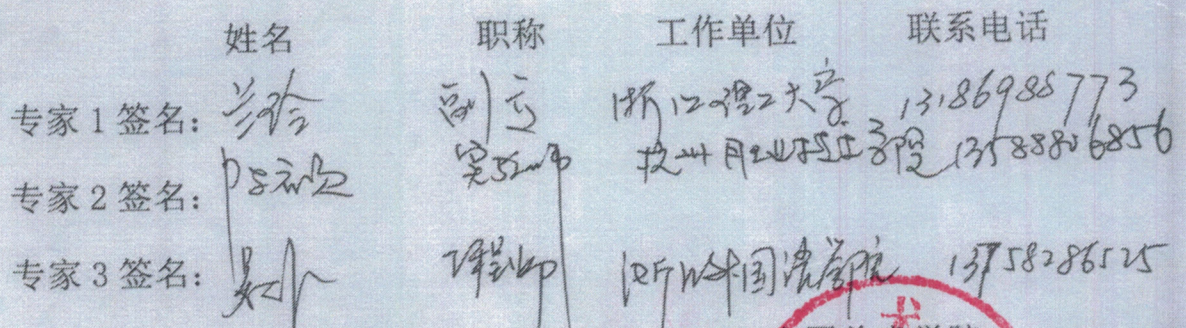 姓名 职称 工作单位 联系电话
专家1签名: 兰玲 副高 浙江理工大学 13186988773
专家2签名: 实验师 杭州职业技术学院 13588806856
专家3签名: 工程师 浙江外国语学院 13758286525
术